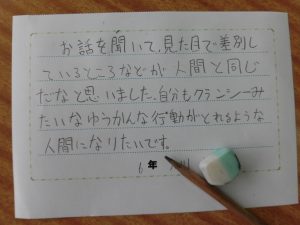 お話を聞いて、見た目で差別し
ているところなどが人間と同じ
だなと思いました、自分もクランシーみ
たいなゆうかんな行動がとれるような
人間になりたいです。
6年